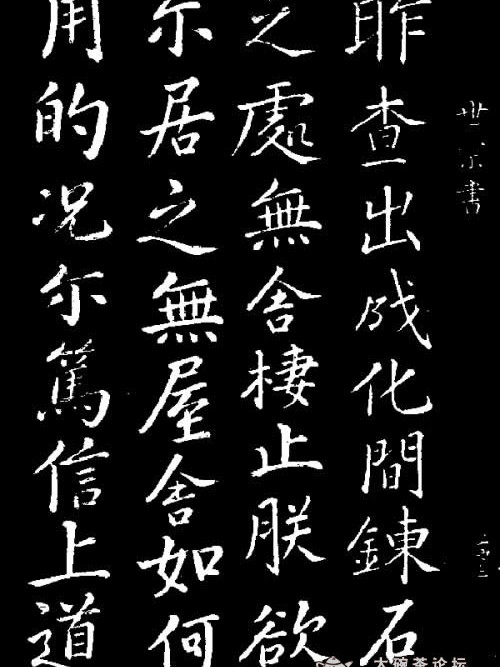 世宗書
昨查出成化間鍊石
之處無舍棲止朕欲
尓居之無屋舍如何
用的况尓篤信上道
大碗茶论坛